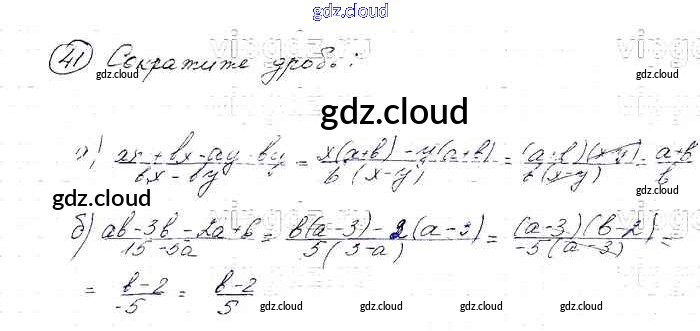 gdz.cloud
41 Сократите дробь:
gdz.cloud
gdz.cloud
gdz.cloud
а) ax + bx - ay - by / bx - by = x(a+b) - y(a+b) / b(x-y) = (a+b)(x-y) / b(x-y) = a+b / b
gdz.cloud
gdz.cloud
б) ab-3b-2a+6 / 15-5a = b(a-3)-2(a-3) / 5(3-a) = (a-3)(b-2) / -5(a-3) =
= b-2 / -5 = b-2 / 5
gdz.cloud
gdz.cloud
gdz.cloud
gdz.cloud